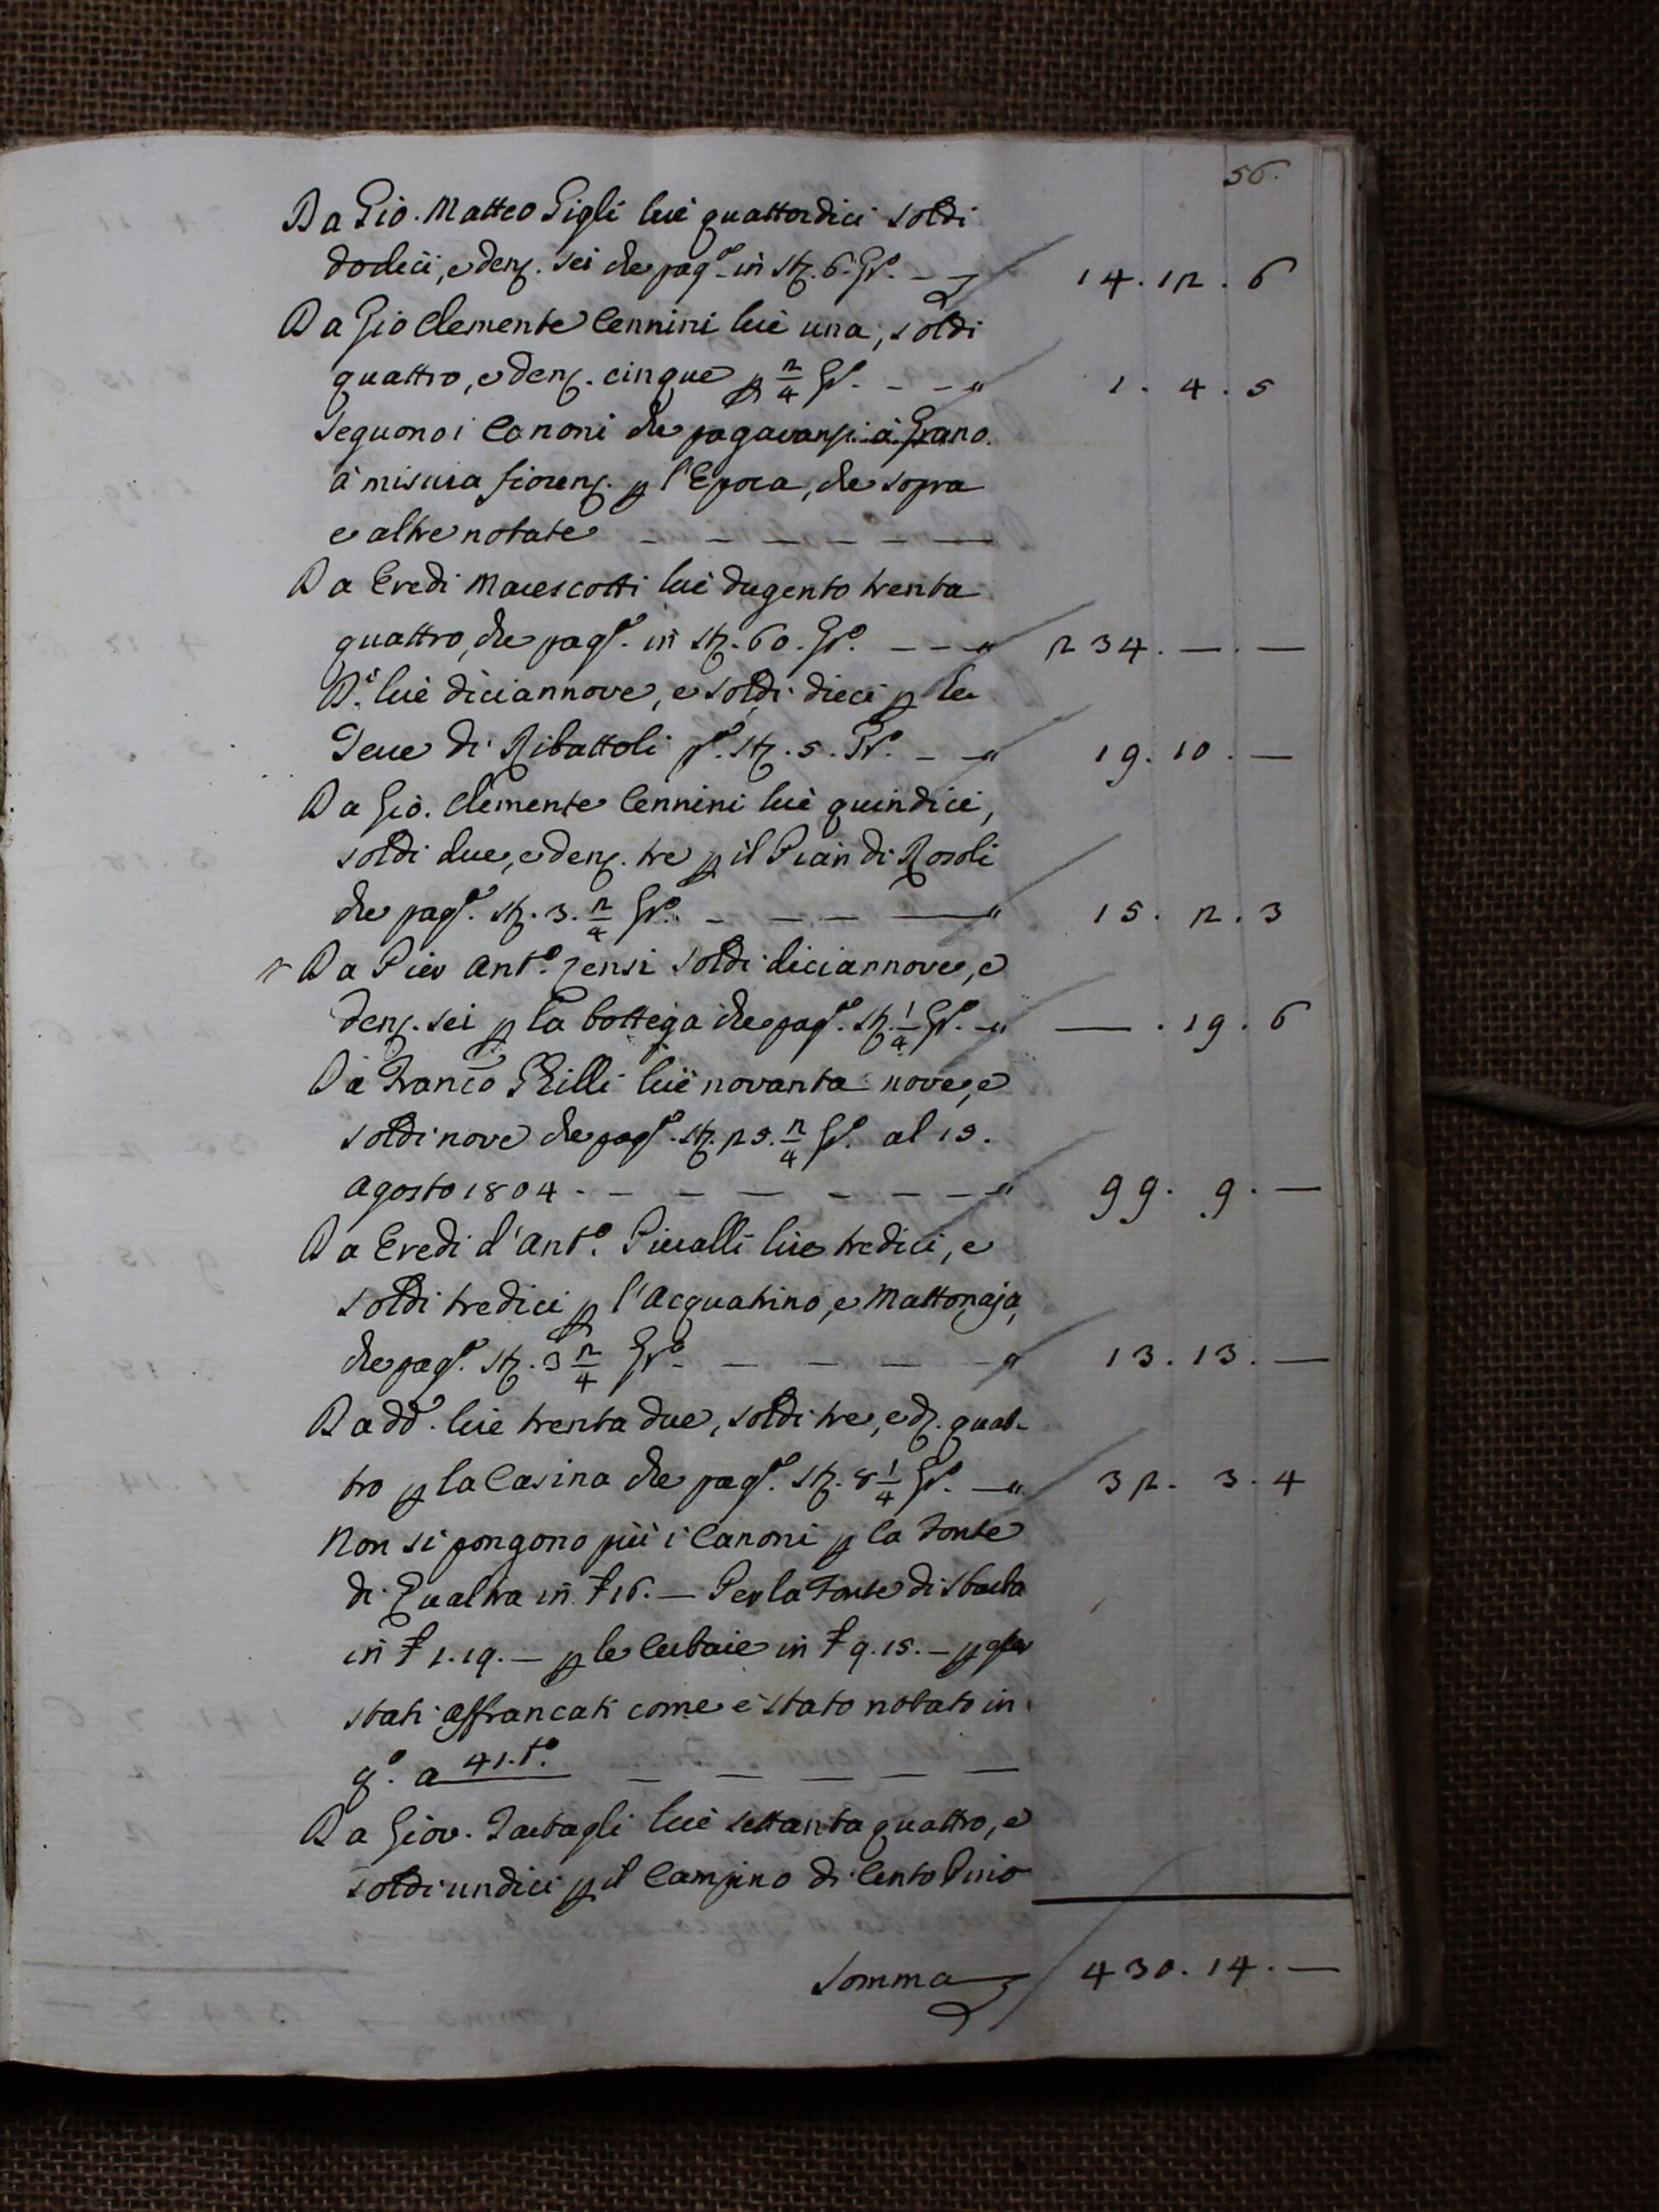 56.
Da Gio. Matteo Gigli lire quattordici soldi
dodici, e denj. sei che pag.o in stj. 6. Gr.o — 14.12.6
Da Gio Clemente Cennini lire una, soldi
quattro, e denj. cinque p 2/4 Gr.o - - " 1.4.5
Seguono i Canoni che pagavansi a Grano
a misura fiorenj. p l'Epoca, che sopra
e altre notate — — — — — —
Da Eredi Marescotti lire dugento trenta
quattro, che pag.o in stj. 60. Gr.o - - - " 234. — . —
D.i lire diciannove, e soldi dieci p le
Terre di Ribattoli p.o stj. 5. Gr.o - - " 19.10. —
Da Gio. Clemente Cennini lire quindici,
soldi due, e denj. tre p il Pian di Rosoli
che pag.o stj. 3. 2/4 Gr.o - - - — " 15. 2. 3
Da Pier Ant.o Zensi soldi diciannove, e
denj. sei p la bottega che pag.o stj. 1/4 Gr.o - " — . 19. 6
Da Franc.o Grilli lire novanta nove, e
soldi nove che pag.o stj. 25. 2/4 Gr.o al 15.
Agosto 1804 - - - - - - - " 99. 9. —
Da Eredi d'Ant.o Pieralli lire tredici, e
soldi tredici p l'Acquatrino, e Mattonaja,
che pag.o stj. 3 2/4 Gr.o - - - - - " 13.13. —
Da dd.i lire trenta due, soldi tre, e dj. quat-
tro p la Casina che pag.o stj. 8 1/4 Gr.o - " 32. 3. 4
Non si pongono più i Canoni p la Fonte
di in ₤ 16. — Per la Fonte di
in ₤ 1.19. — p le in ₤ 9.15. — p
stati affrancati come è stato notato in
q.o a 41. t.o — — — — —
Da Giov. Tartagli lire settanta quattro, e
soldi undici p il Campino di Cento
Somma 430.14. —